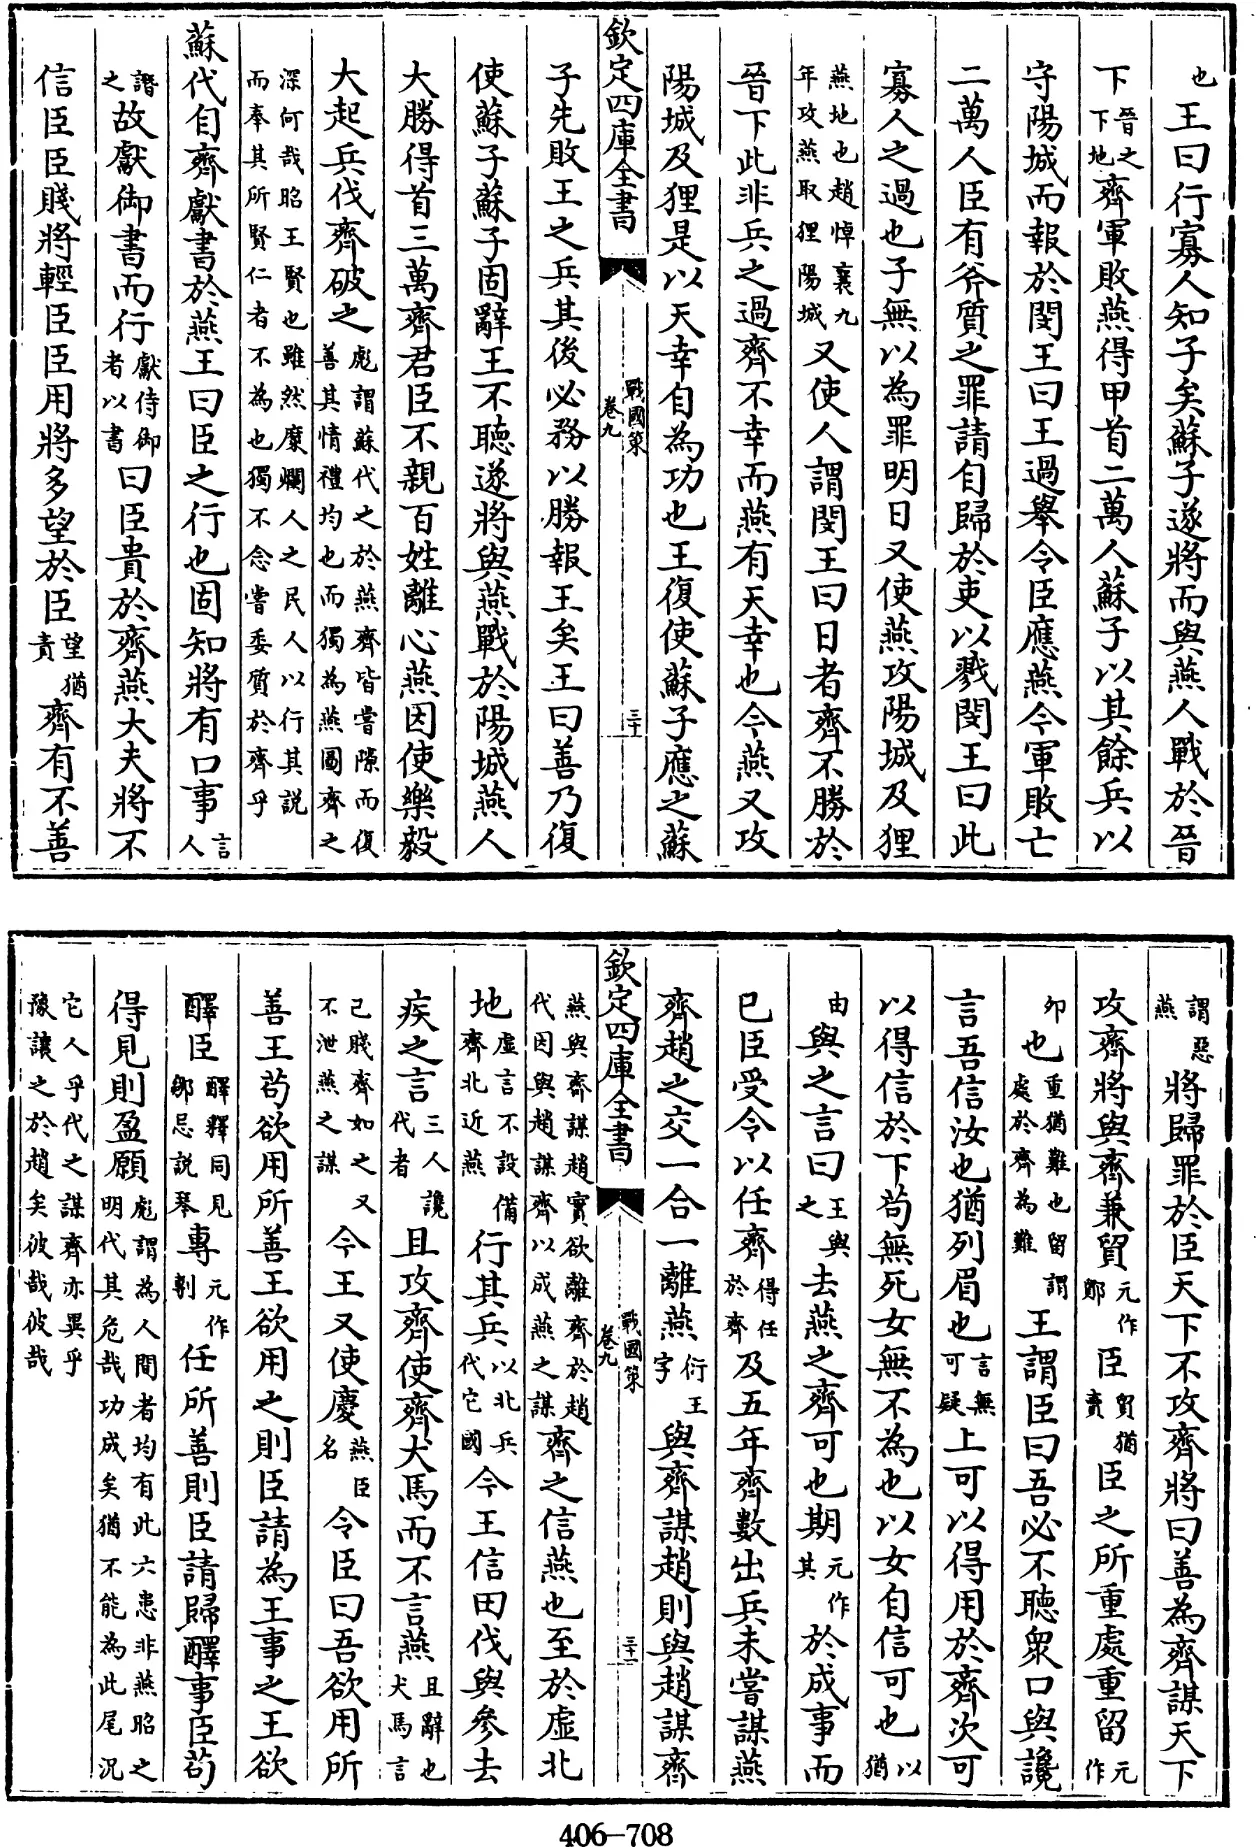 也王曰行寡人知子矣蘇子遂將而與燕人戰於晉
下晉之下地齊軍敗燕得甲首二萬人蘇子以其餘兵以
守陽城而報於閔王曰王過舉令臣應燕今軍敗亡
二萬人臣有斧質之罪請自歸於吏以戮閔王曰此
寡人之過也子無以為罪明日又使燕攻陽城及狸
燕地也趙悼襄九年攻燕取狸陽城又使人謂閔王曰日者齊不勝於
晉下此非兵之過齊不幸而燕有天幸也今燕又攻
陽城及狸是以天幸自為功也王復使蘇子應之蘇
欽定四庫全書 戰國策卷九 三十
子先敗王之兵其後必務以勝報王矣王曰善乃復
使蘇子蘇子固辭王不聽遂將與燕戰於陽城燕人
大勝得首三萬齊君臣不親百姓離心燕因使樂毅
大起兵伐齊破之彪謂蘇代之於燕齊皆嘗隙而復善其情禮均也而獨為燕圖齊之
深何哉昭王賢也雖然糜爛人之民人以行其説而奉其所賢仁者不為也獨不念嘗委質於齊乎
蘇代自齊獻書於燕王曰臣之行也固知將有口事言人
譖之故獻御書而行獻侍御者以書曰臣貴於齊燕大夫將不
信臣臣賤將輕臣臣用將多望於臣望猶責齊有不善
謂惡燕將歸罪於臣天下不攻齊將曰善為齊謀天下
攻齊將與齊兼貿元作鄮臣貿猶賣臣之所重處重留元作
卯也重猶難也留謂處於齊為難王謂臣曰吾必不聽衆口與讒
言吾信汝也猶列眉也言無可疑上可以得用於齊次可
以得信於下苟無死女無不為也以女自信可也以猶
由與之言曰王與之去燕之齊可也期元作其於成事而
已臣受令以任齊得任於齊及五年齊數出兵未嘗謀燕
齊趙之交一合一離燕衍王字與齊謀趙則與趙謀齊
欽定四庫全書 戰國策卷九 三十一
燕與齊謀趙實欲離齊於趙代因與趙謀齊以成燕之謀齊之信燕也至於虛北
地虛言不設備齊北近燕行其兵以北兵代它國今王信田伐與參去
疾之言三人讒代者且攻齊使齊犬馬而不言燕且辭也犬馬言
己賤齊如之又不泄燕之謀今王又使慶燕臣名令臣曰吾欲用所
善王苟欲用所善王欲用之則臣請為王事之王欲
醳臣醳釋同見鄒忌説琴專元作剸任所善則臣請歸醳事臣苟
得見則盈願彪謂為人間者均有此六患非燕昭之明代其危哉功成矣猶不能為此尾況
它人乎代之謀齊亦異乎豫讓之於趙矣彼哉彼哉
406-708